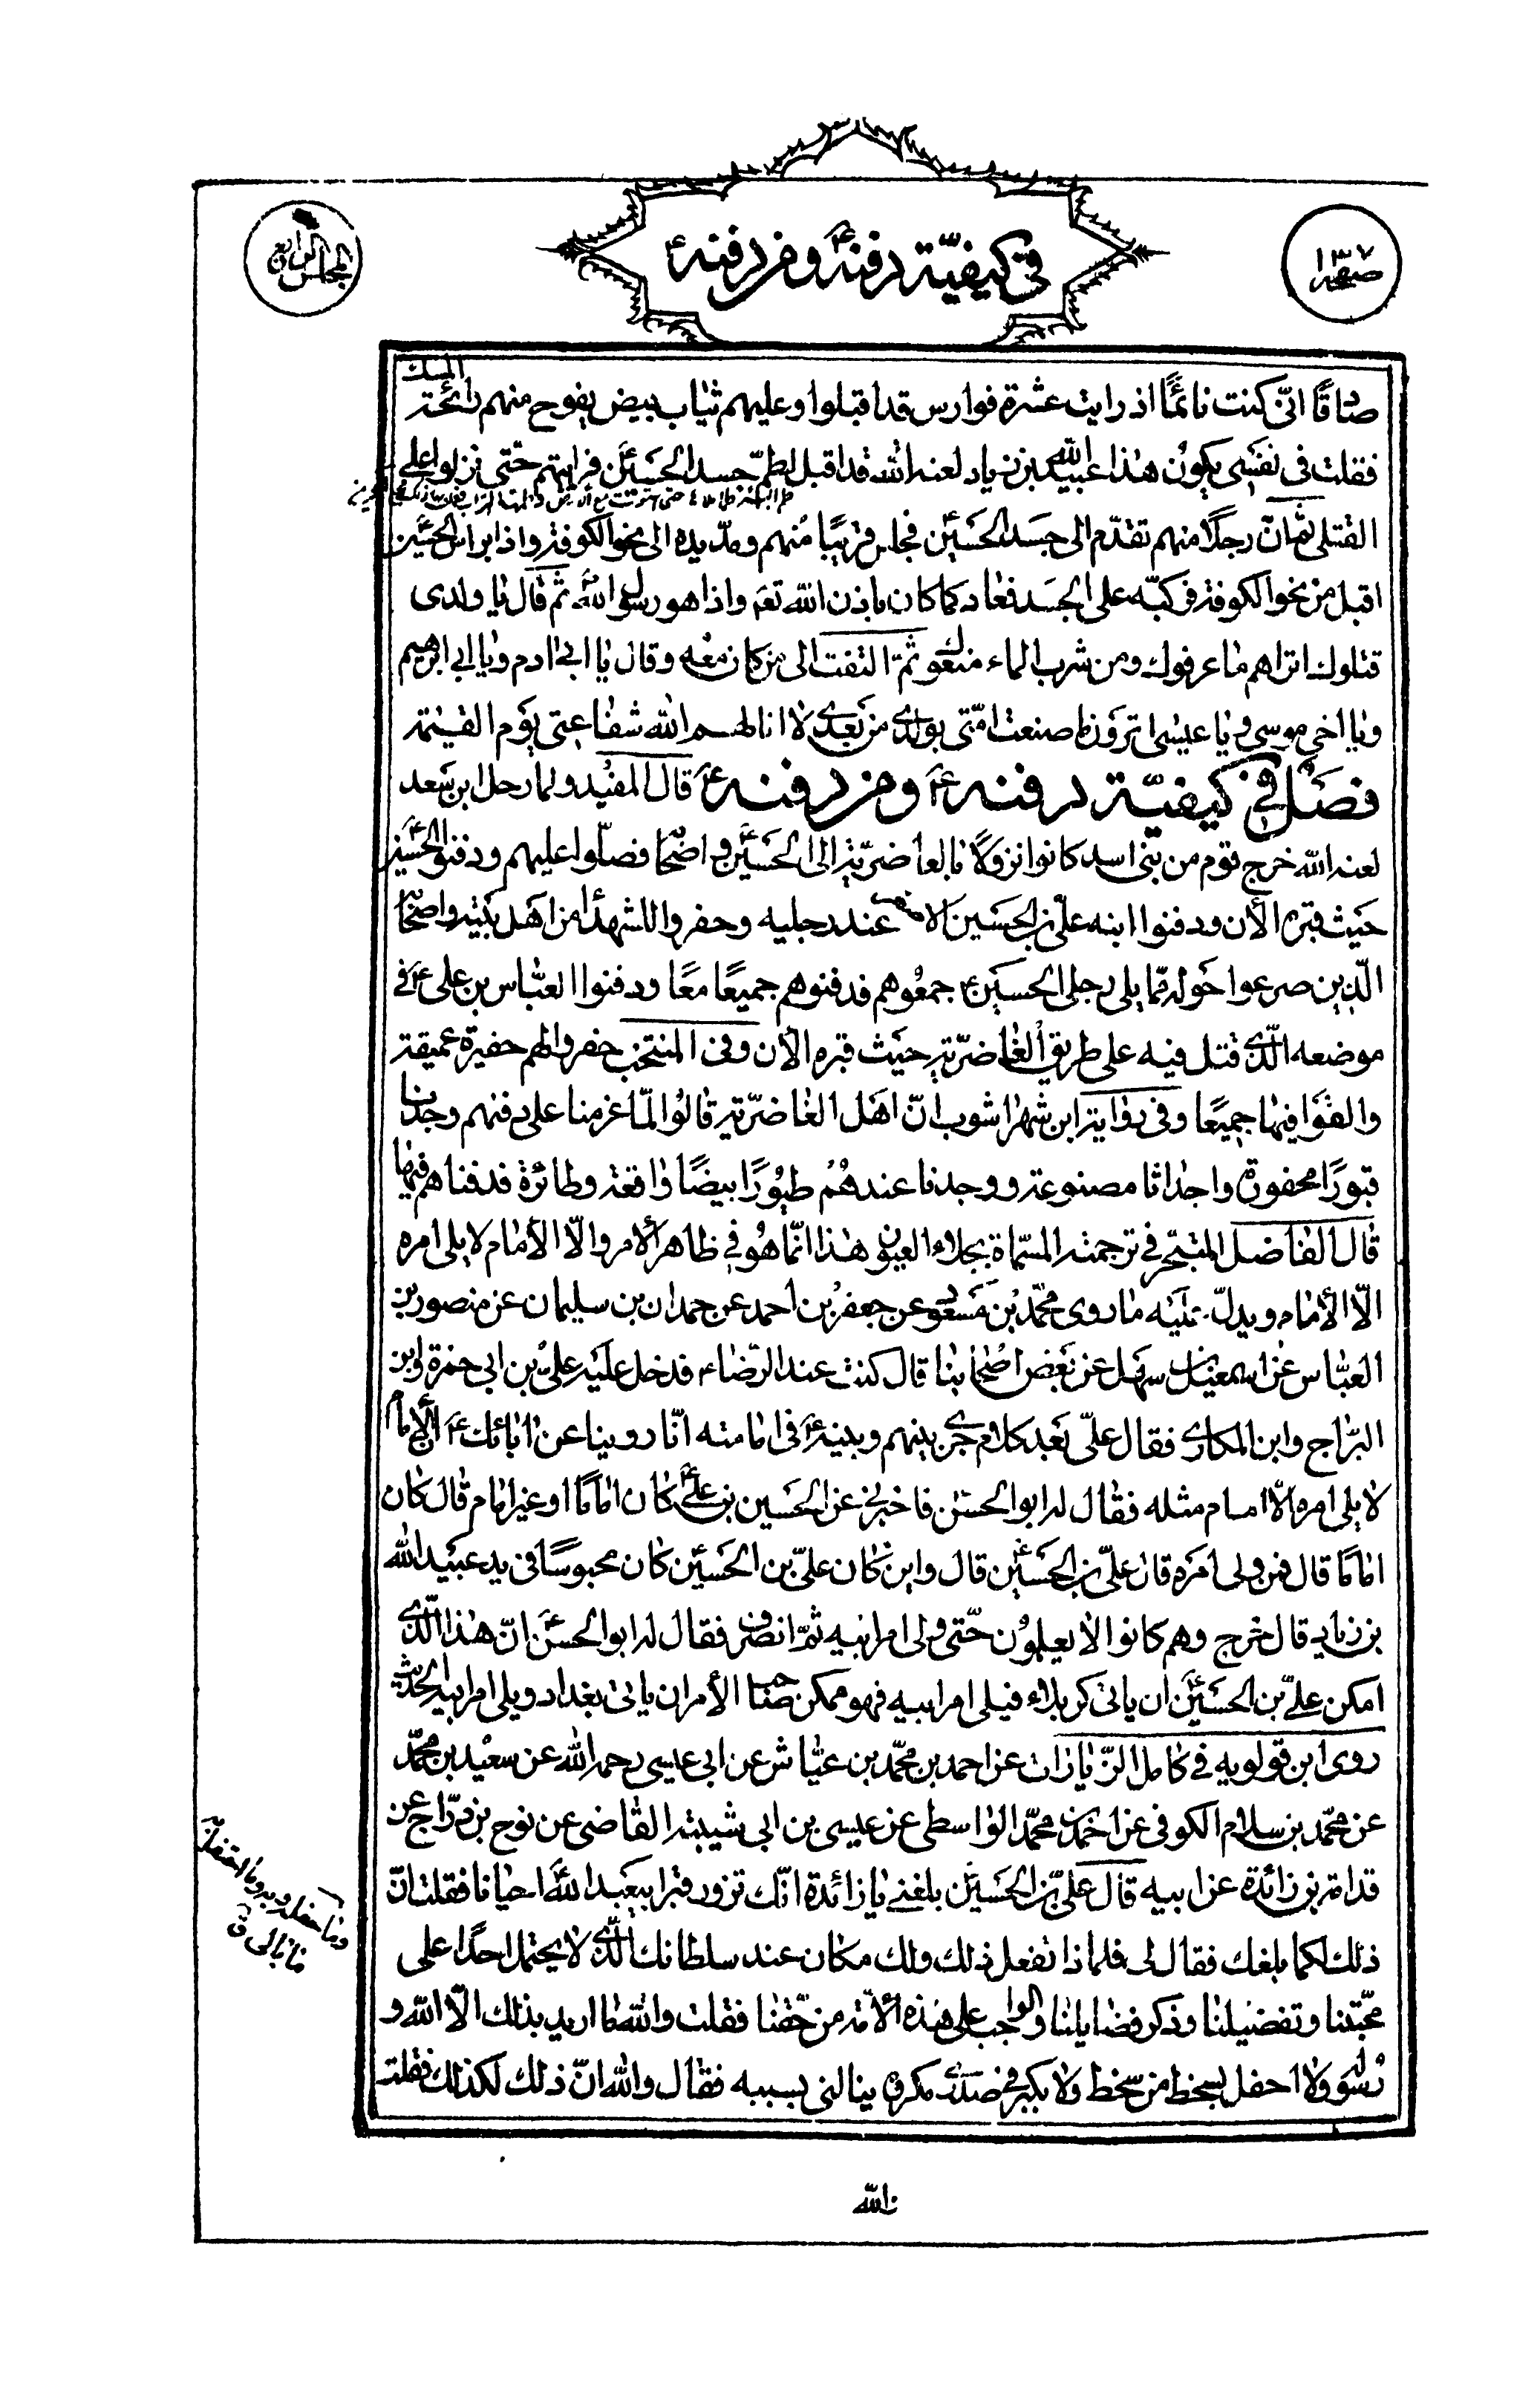 صفحه ١٣٧
في كيفيّة دفنه ع ومن دفنه ع
المجلس الرابع
صادقًا انّى كنت نائمًا اذ رايت عشرة فوارس قد اقبلوا وعليهم ثياب بيض يفوح منهم رائحة المسك
فقلت فى نفسى يكون هذا عبيد الله بن زياد لعنه الله قد اقبل لطمّ جسد الحسين ع فرايتهم حتى نزلوا على
القتلى ثم انّ رجلًا منهم تقدّم الى جسد الحسين ع فجلس قريبًا منهم ومدّ يده الى نحو الكوفة واذا براس الحسين ع
اقبل من نحو الكوفة فركبّه على الجسد فعاد كما كان باذن الله تعم واذا هو رسول الله ص ثم قال يا ولدى
قتلوك اتراهم ما عرفوك ومن شرب الماء منعوك ثمّ التفت الى من كان معه وقال يا ابى ادم ويا ابى ابرهيم
ويا اخى موسى ويا عيسى اترون ما صنعت امّتى بولدى من بعدى لا انالهم الله شفاعتى يوم القيمة
فصل في كيفيّة دفنه ع ومن دفنه ع قال المفيد ولما رحل ابن سعد
لعنه الله خرج قوم من بنى اسد كانوا نزولًا بالغاضريّة الى الحسين ع واصحابه فصلّوا عليهم ودفنوا الحسين ع
حيث قبره الأن ودفنوا ابنه علىّ بن الحسين الاصغر عند رجليه وحفروا للشهداء من اهل بيته واصحابه
الّذين صرعوا حوله ممّا يلى رجلى الحسين ع جمعوهم فدفنوهم جميعًا معًا ودفنوا العبّاس بن على ع في
موضعه الّذى قتل فيه على طريق الغاضريّة حيث قبره الأن وفى المنتخب حفروا لهم حفيرة عميقة
والقوا فيها جميعًا وفى رواية ابن شهراشوب انّ اهل الغاضريّة قالوا لمّا عزمنا على دفنهم وجدنا
قبورًا محفورة واجداثا مصنوعة ووجدنا عندهم طيورًا بيضًا واقعة وطائرة فدفناهم فيها
قال الفاضل المتبحّر في ترجمته المسمّاة بجلاء العيون هذا انّما هو في ظاهر الامر والّا الأمام لا يلى امره
الّا الأمام ويدلّ عليه ما روى محمّد بن مسعود عن جعفر بن احمد عن حمدان بن سليمان عن منصور بن
العبّاس عن اسمعيل بن سهل عن بعض اصحابنا قال كنت عند الرّضا ع فدخل عليه علىّ بن ابى حمزة وابن
السّراج وابن المكارى فقال علىّ بعد كلام جرى بينهم وبينه ع فى امامته انّا روينا عن ابائك ع انّ الامام
لا يلى امره الّا امام مثله فقال له ابو الحسن فاخبرنى عن الحسين بن على ع كان امامًا او غير امام قال كان
امامًا قال فمن ولى امره قال علىّ بن الحسين ع قال واين كان علىّ بن الحسين كان محبوسًا فى يد عبيد الله
بن زياد قال خرج وهم كانوا لا يعلمون حتّى ولى امر ابيه ثمّ انصرف فقال له ابو الحسن ع انّ هذا الّذى
امكن علىّ بن الحسين ع ان ياتى كربلاء فيلى امر ابيه فهو ممكن صاحب الأمر ان ياتى بغداد ويلى امر ابيه الحديث
روى ابن قولويه في كامل الزّيارات عن احمد بن محمّد بن عيّاش عن ابى عيسى رحمه الله عن سعيد بن محمّد
عن محمّد بن سلام الكوفى عن احمد بن محمّد الواسطى عن عيسى بن ابى شيبة القاضى عن نوح بن درّاج عن
قدامة بن زائدة عن ابيه قال قال علىّ بن الحسين ع بلغنى يا زائدة انّك تزور قبر ابيعبد الله ع احيانا فقلت انّ
ذلك لكما بلغك فقال لى فلماذا تفعل ذلك ولك مكان عند سلطانك الّذى لا يحتمل احدًا على
محبّتنا وتفضيلنا وذكر فضايلنا والواجب على هذه الأمّة من حقّنا فقلت والله ما اريد بذلك الّا الله و
رسوله ولا احفل بسخط من سخط ولا يكبر في صدرى مكروه ينالنى بسببه فقال والله انّ ذلك لكذلك فقلت
وما حفله وبه وما احتفل
ما بالى ق
والله